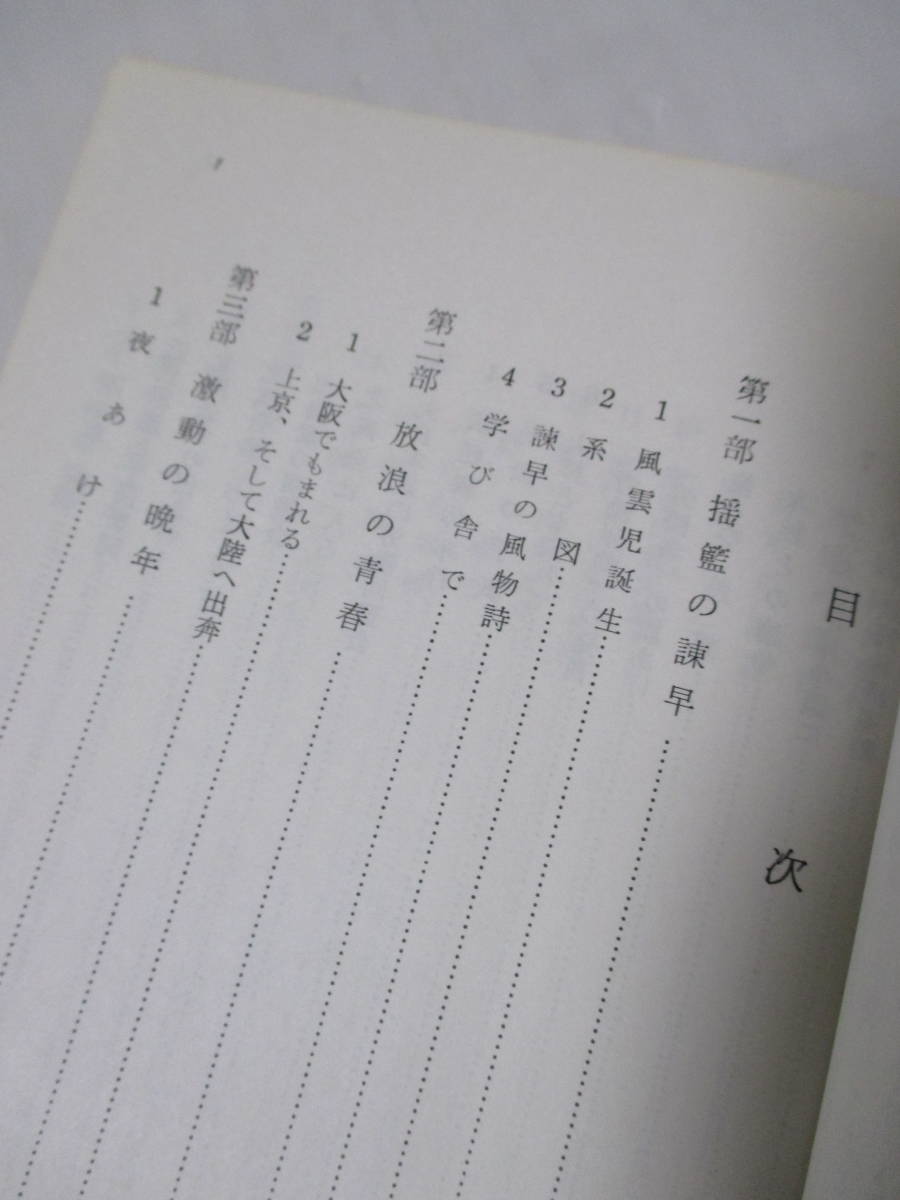 目次
第一部 揺籃の諫早……
1 風雲児誕生……
2 系図……
3 諫早の風物詩……
4 学び舎で……
第二部 放浪の青春……
1 大阪でもまれる……
2 上京、そして大陸へ出奔……
第三部 激動の晩年……
1 夜あけ……